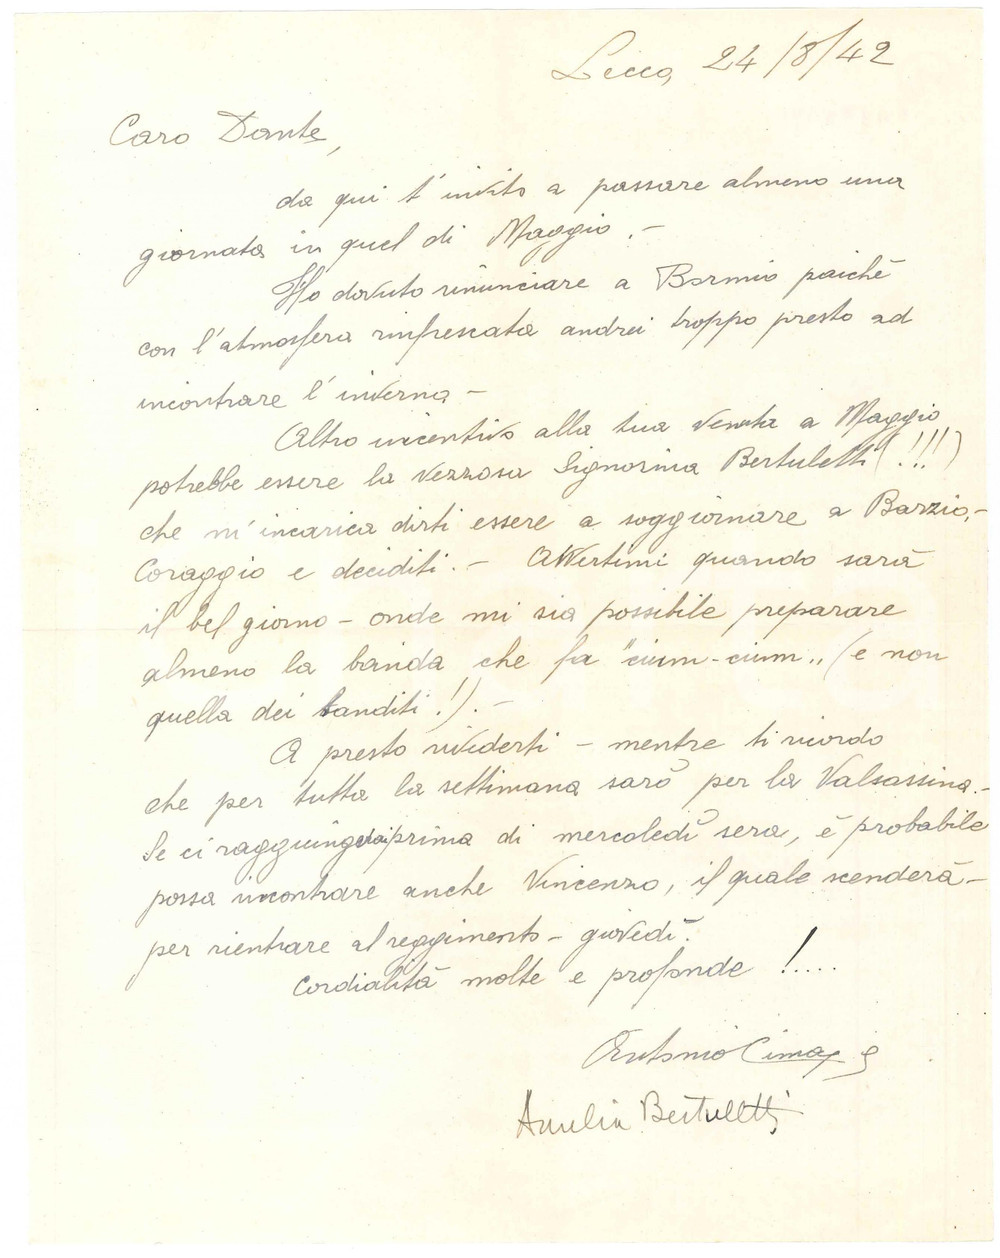 Lecco, 24/8/42
Caro Dante,
da qui t'invito a passare almeno una
giornata in quel di Maggio.-
Ho dovuto rinunciare a Bormio poichè
con l'atmosfera rinfrescata andrei troppo presto ad
incontrare l'inverno-
Altro incentivo alla tua venuta a Maggio
potrebbe essere la vezzosa Signorina Bertuletti (!!!)
che m'incarica dirti essere a soggiornare a Barzio.-
Coraggio e deciditi.- Avvertimi quando sarà
il bel giorno - onde mi sia possibile preparare
almeno la banda che fa "cium-cium" (e non
quella dei banditi!).-
A presto rivederti - mentre ti ricordo
che per tutta la settimana sarò per la Valsassina.-
Se ci raggiungerai prima di mercoledì sera, è probabile
possa incontrare anche Vincenzo, il quale scenderà-
per rientrare al reggimento - giovedì.
Cordialità molte e profonde !.....
Antonio Cima
Amelia Bertuletti